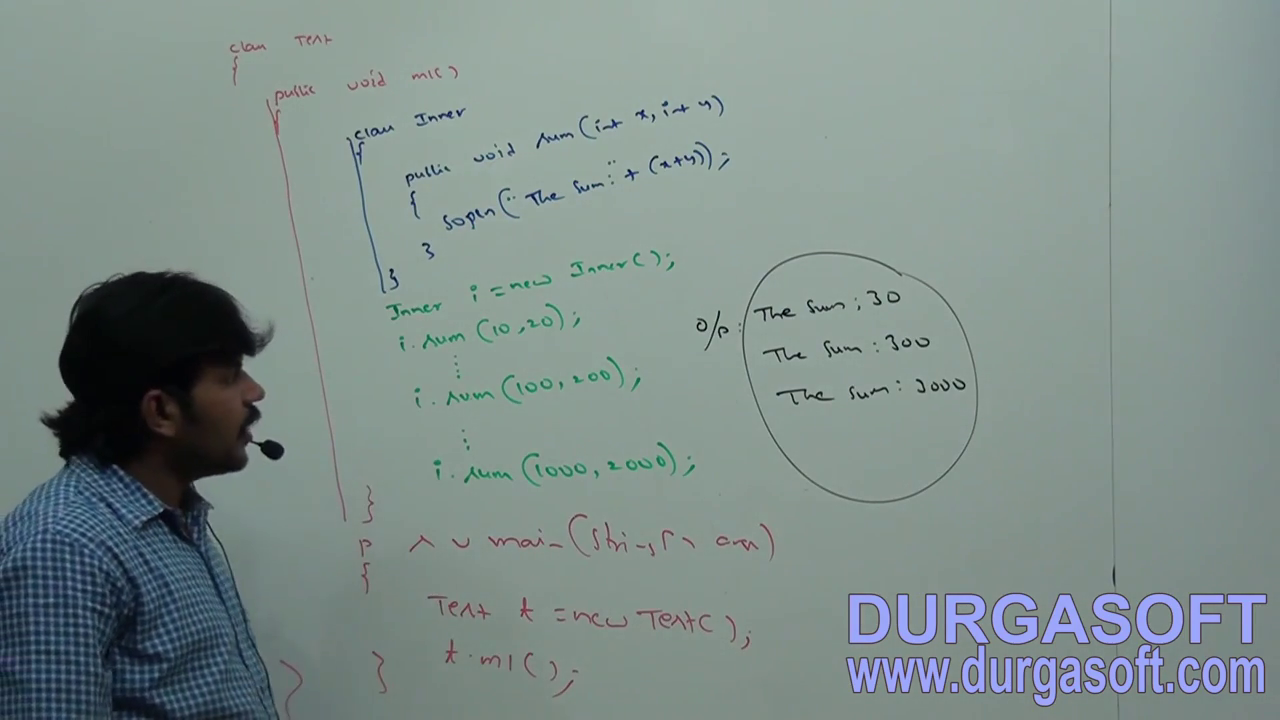 class Test
{
public void m1()
{
class Inner
{
public void sum(int x, int y)
{
sopln("The sum:" + (x+y));
}
}
Inner i = new Inner();
i.sum(10,20);
⋮
i.sum(100, 200);
⋮
i.sum(1000, 2000);
}
p s v main(String[] args)
{
Test t = new Test();
t.m1();
}
}
O/P:
The sum: 30
The sum: 300
The sum: 3000
DURGASOFT
www.durgasoft.com